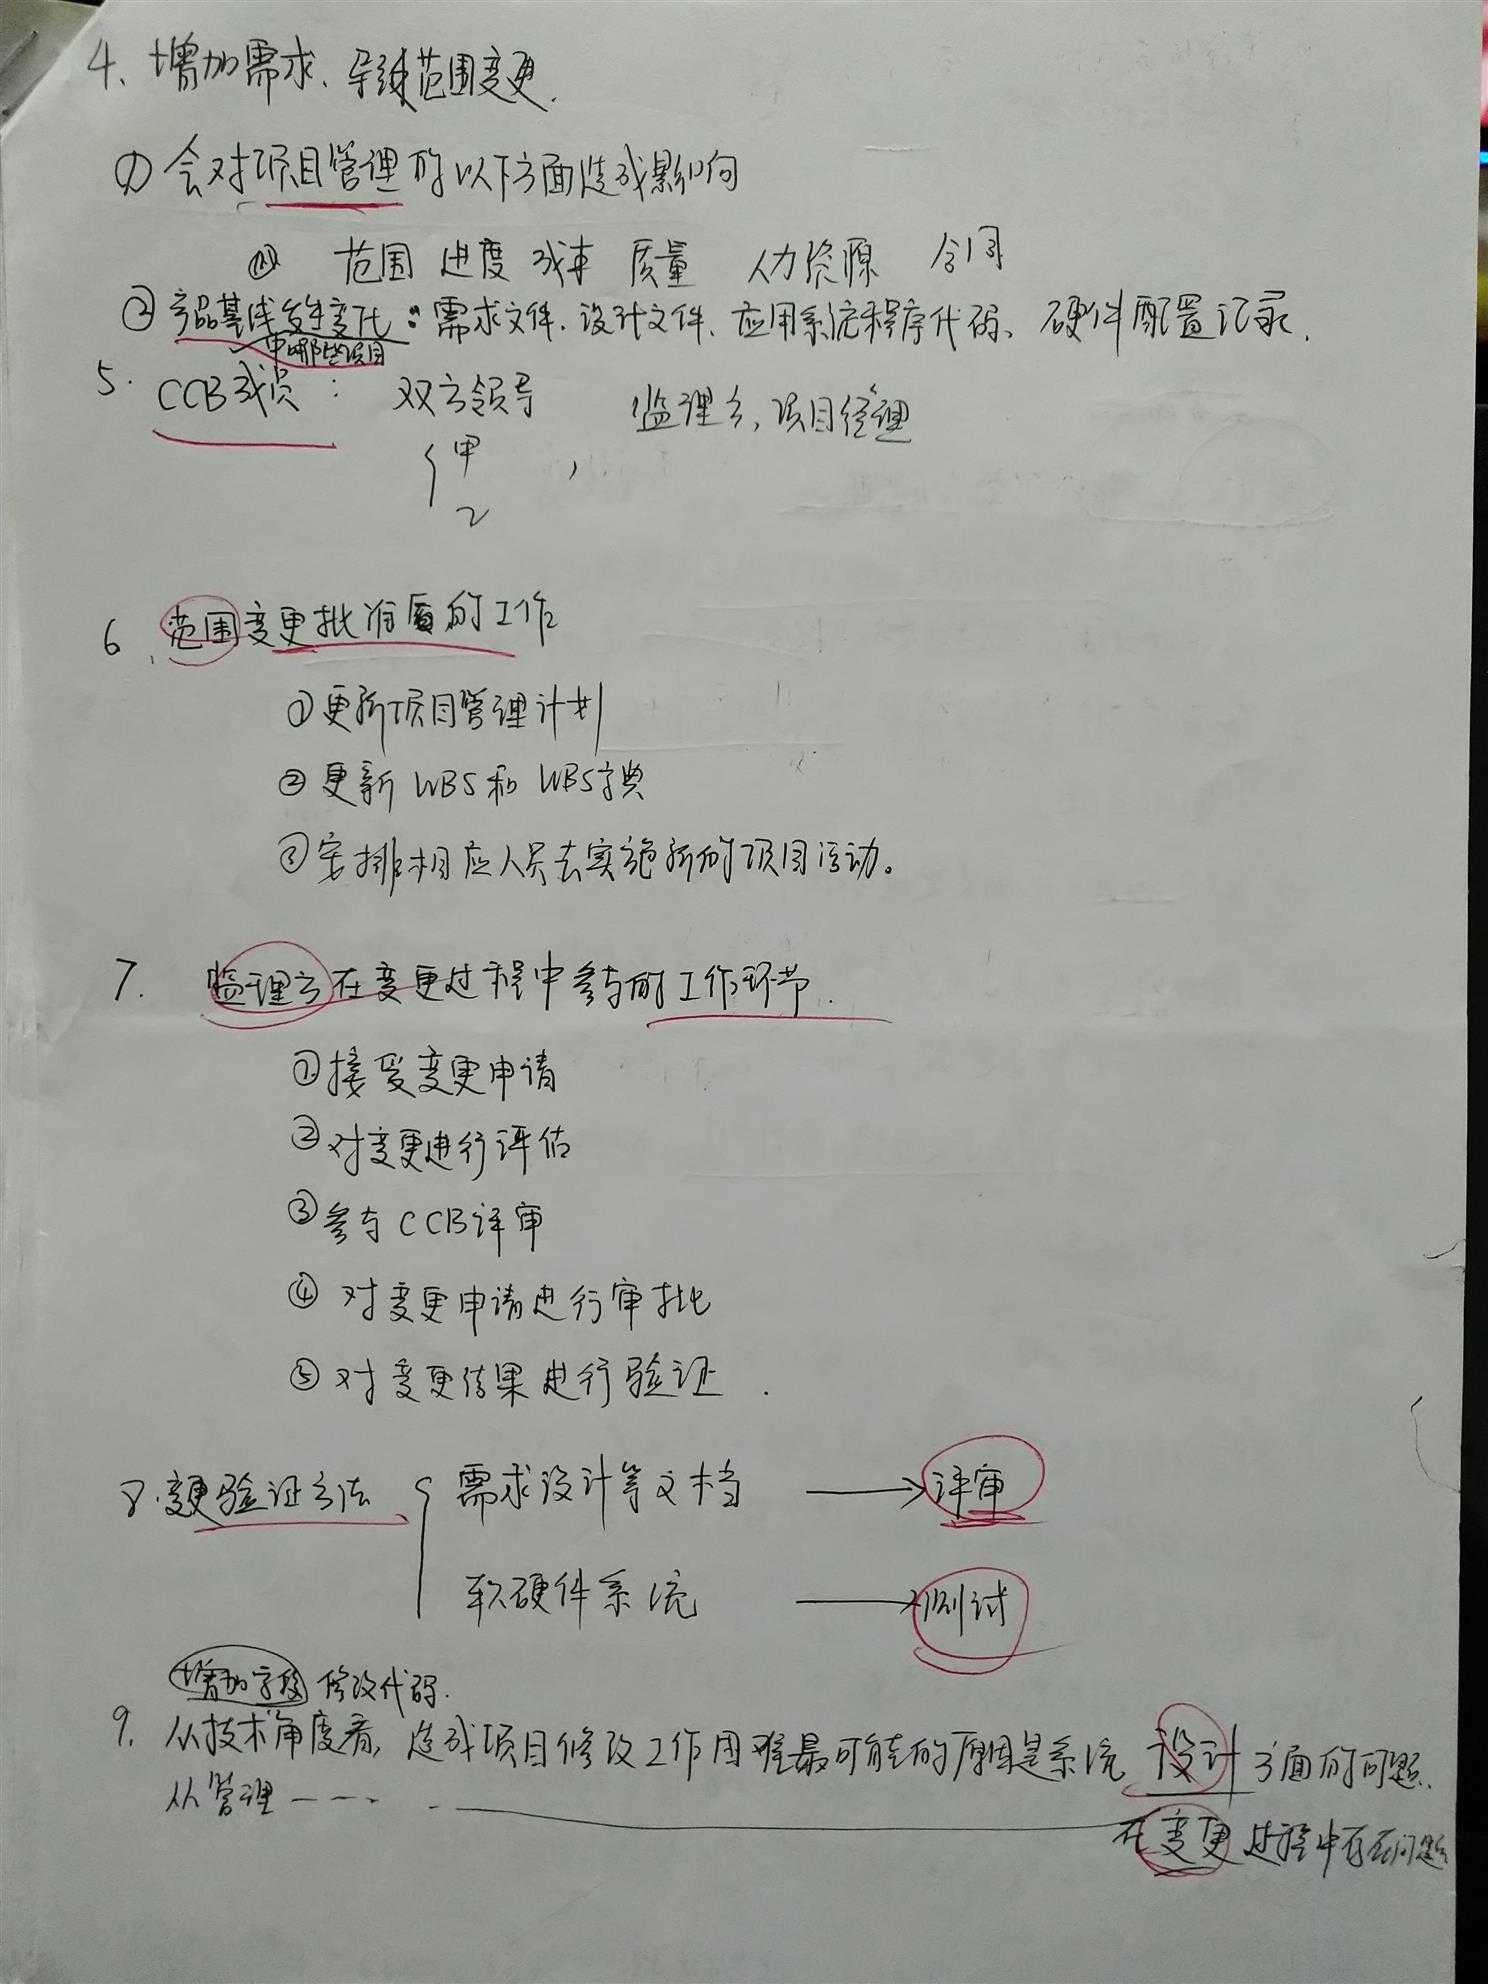 4、增加需求、导致范围变更.
① 会对项目管理的以下方面造成影响
范围 进度 成本 质量 人力资源 合同
② 产品基线发生变化：需求文件、设计文件、应用系统程序代码、硬件配置记录.
中哪些项目
5. CCB成员： 双方领导 监理方，项目经理
甲 ，
乙
6、范围变更批准后的工作
①更新项目管理计划
②更新WBS和WBS字典
③安排相应人员去实施新的项目活动。
7. 监理方在变更过程中参与的工作环节.
①接受变更申请
②对变更进行评估
③参与CCB评审
④ 对变更申请进行审批
⑤ 对变更结果进行验证.
8.变更验证方法 { 需求设计等文档 → 评审
软硬件系统 → 测试
增加字段 修改代码.
9. 从技术角度看，造成项目修改工作困难最可能的原因是系统 设计方面的问题.
从管理 ---- 在变更过程中存在问题